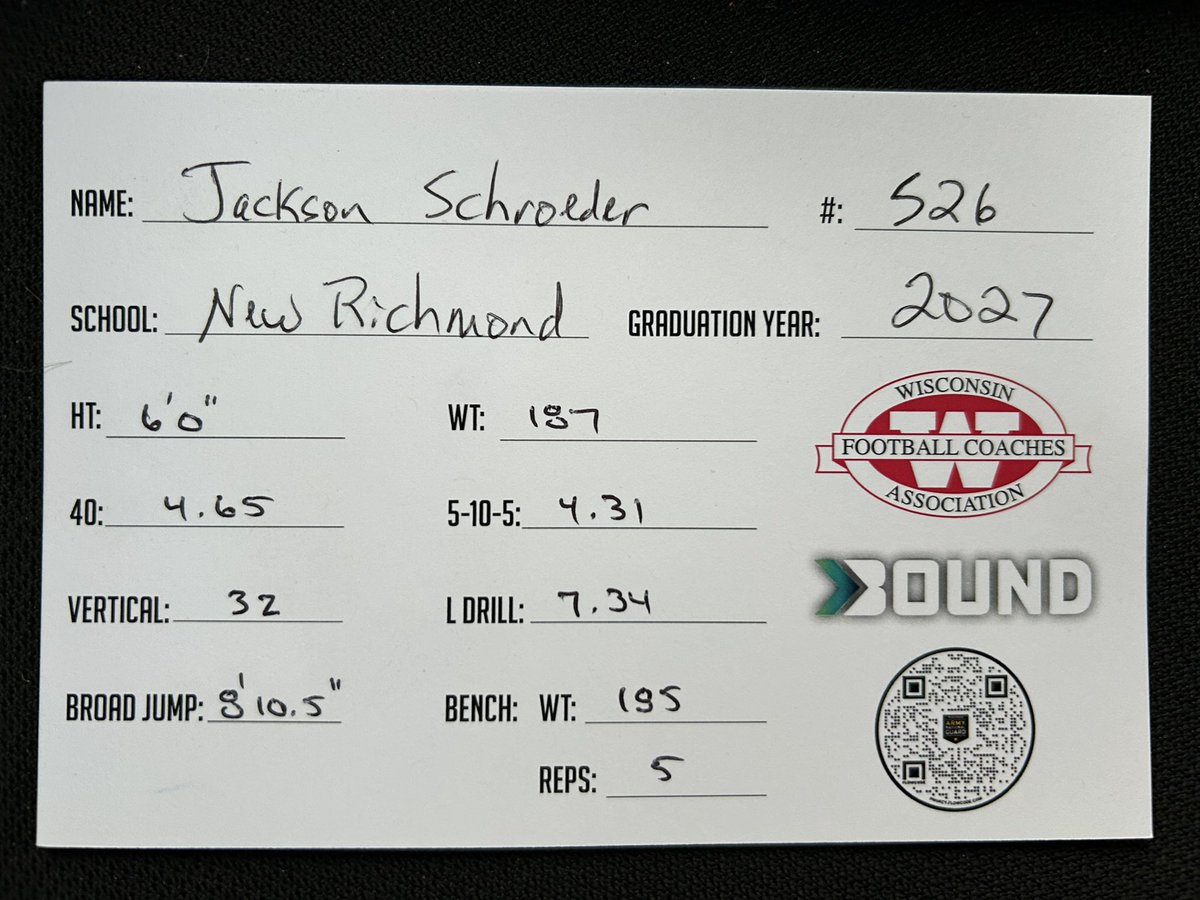 NAME: Jackson Schroeder #: 526
SCHOOL: New Richmond GRADUATION YEAR: 2027
HT: 6'0" WT: 187
WISCONSIN
FOOTBALL COACHES
ASSOCIATION
40: 4.65 5-10-5: 4.31
VERTICAL: 32 L DRILL: 7.34
BOUND
BROAD JUMP: 8'10.5" BENCH: WT: 185
REPS: 5
ARMY
NATIONAL
GUARD
FLOWCODE
PRIVACY.FLOWCODE.COM